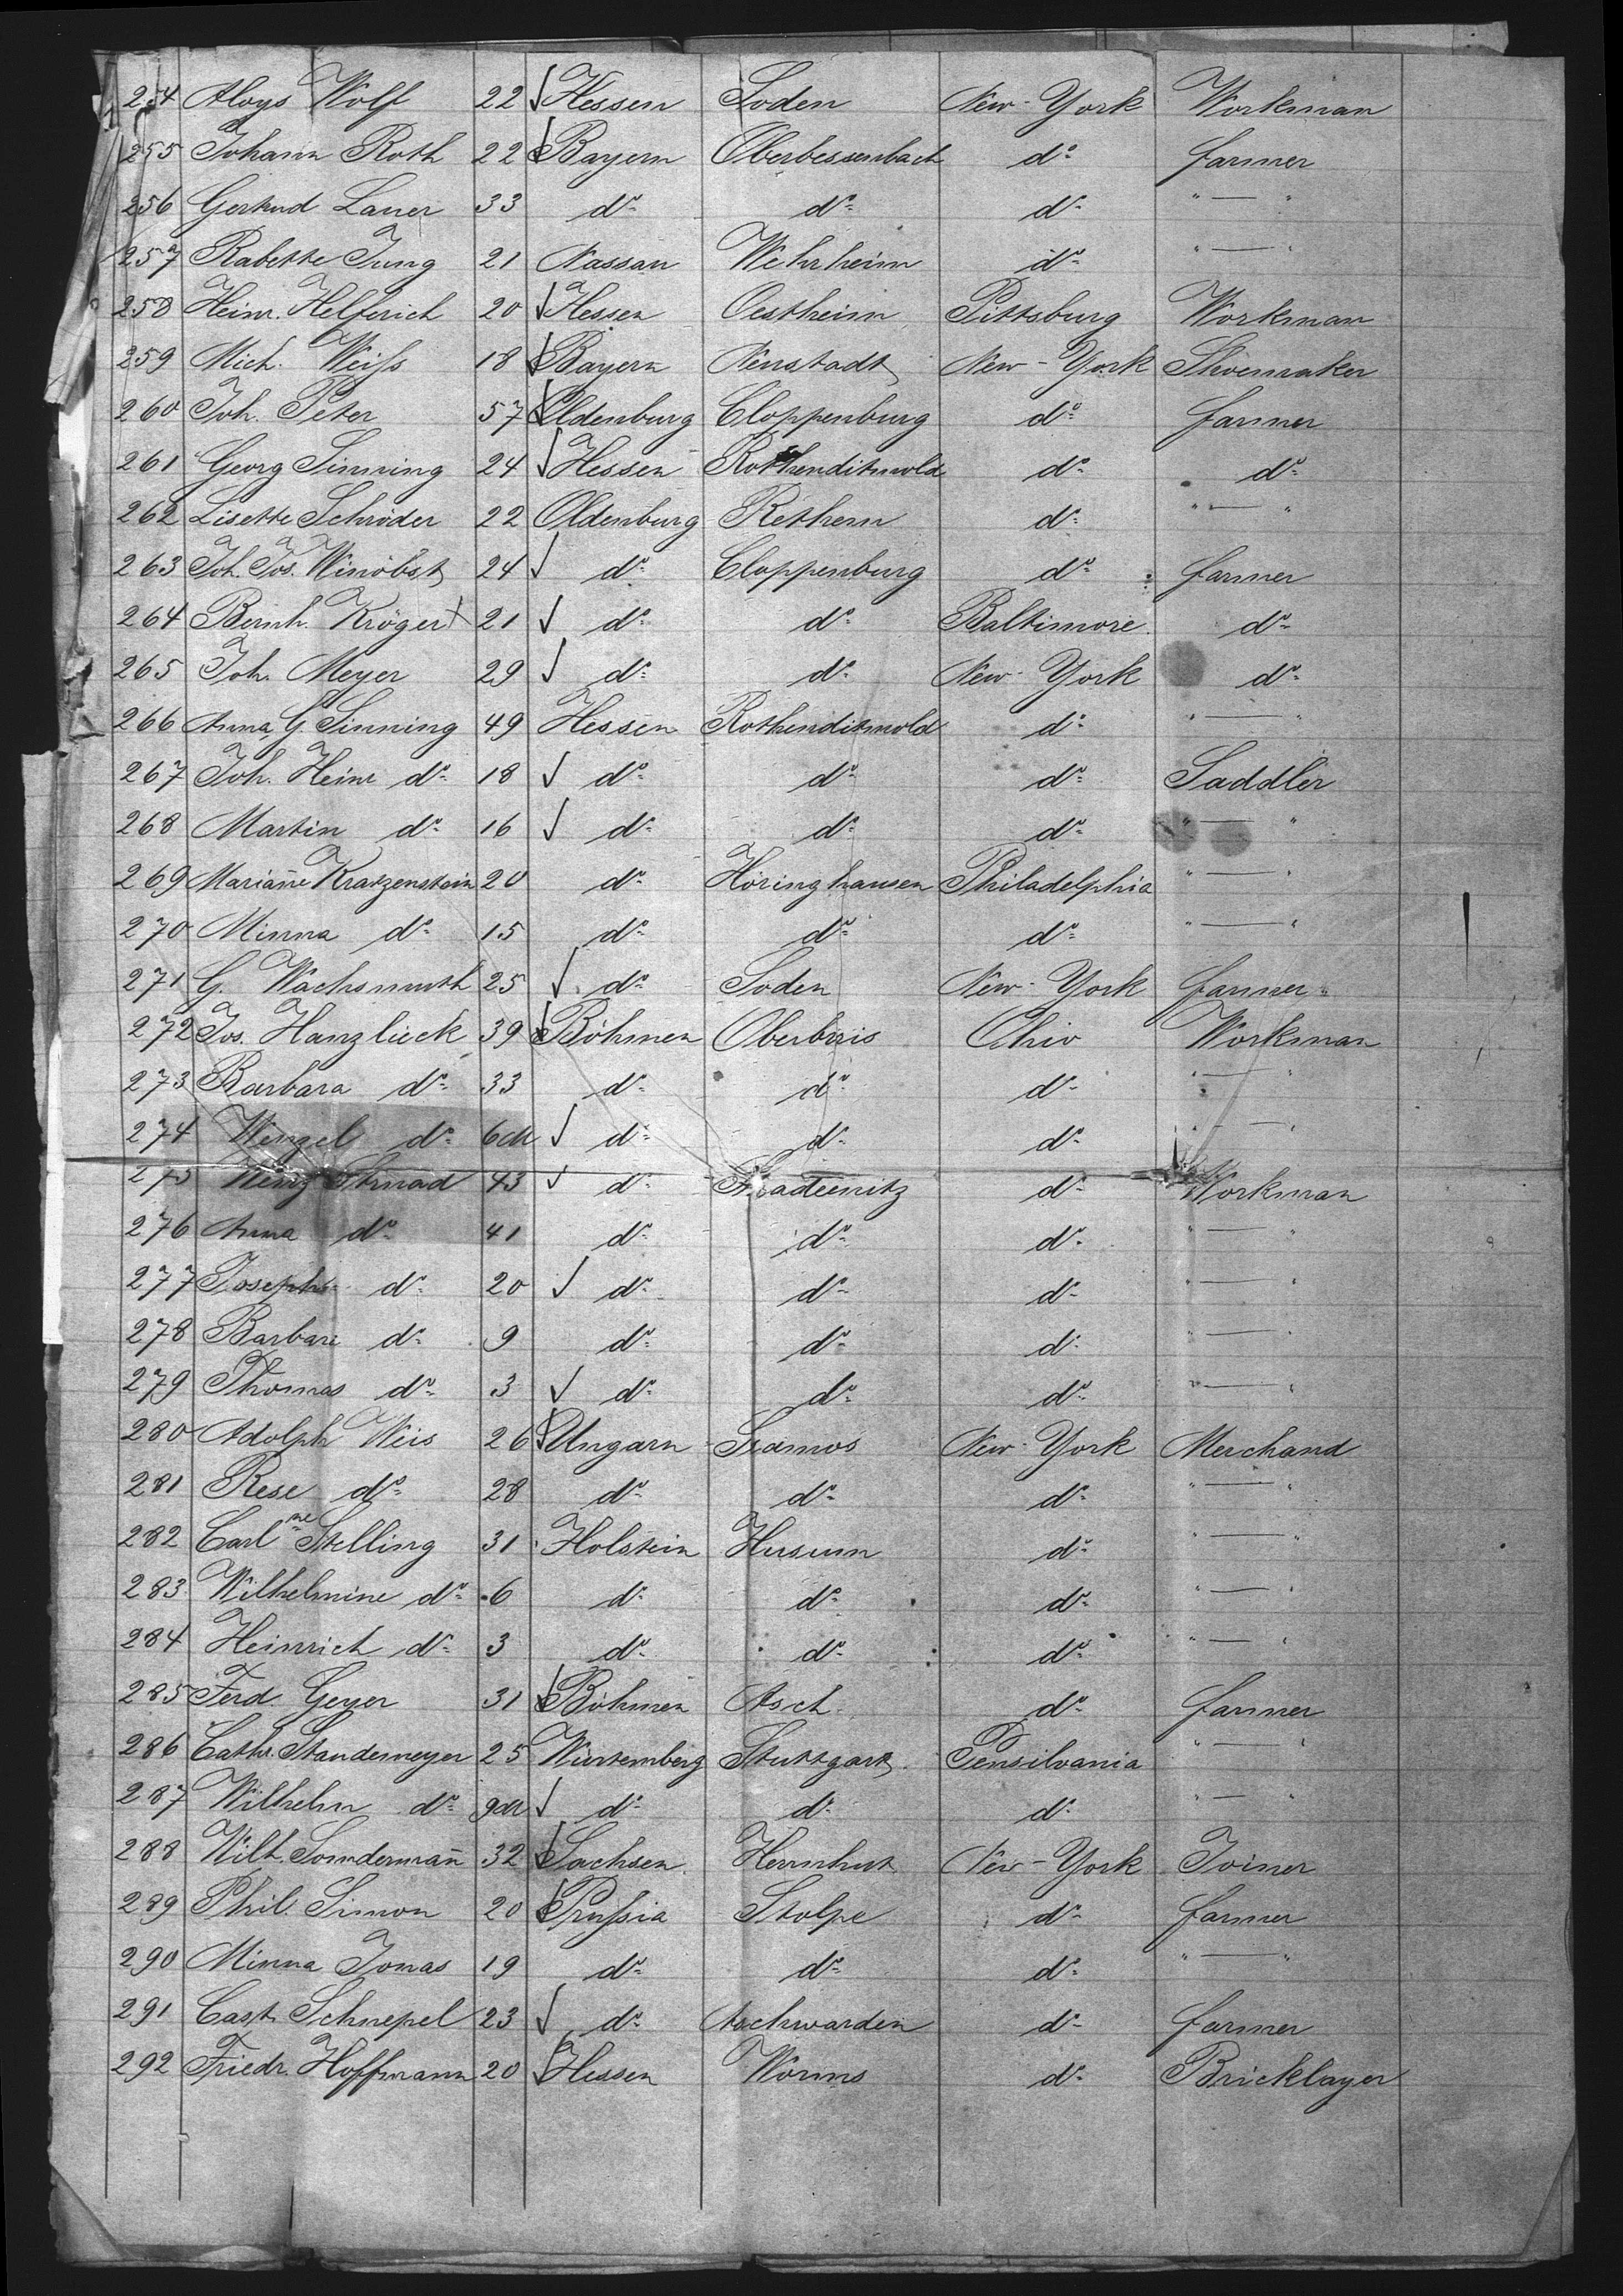 254 Aloys Wolf 22 √ Hessen Soden New-York Workman
255 Johann Roth 22 √ Bayern Oberbessenbach do farmer
256 Gertrud Lauer 33 do do do " — "
257 Babette Jung 21 Nassau Wehrheim do " — "
258 Heinr. Helferich 20 √ Hessen Oestheim Pittsburg Workman
259 Mich. Weiss 18 √ Bayern Neustadt New-York Shoemaker
260 Joh. Peter 57 √ Oldenburg Cloppenburg do farmer
261 Georg Sinning 24 √ Hessen Rothenditmold do do
262 Lisette Schröder 22 Oldenburg Rethem do " — "
263 Joh. Jos. Winöbst 24 √ do Cloppenburg do farmer
264 Bernh. Kröger x 21 √ do do Baltimore do
265 Joh. Meyer 29 √ do do New-York do
266 Anna G Sinning 49 Hessen Rothenditmold do " — "
267 Joh. Heinr do 18 √ do do do Saddler
268 Martin do 16 √ do do do " — "
269 Mariañe Kratzenstein 20 do Höringhausen Philadelphia " — "
270 Minna do 15 do do do " — "
271 G. Wachsmuth 25 √ do Soden New-York farmer
272 Jos. Hanzlieck 39 √ Böhmen Oberbris Ohio Workman
273 Barbara do 33 do do do " — "
274 Wenzel do 6 M √ do do do " — "
275 Wenz Strnad 43 √ do do Workman
276 Anna do 41 do do do " — "
277 Joseph do 20 √ do do do " — "
278 Barbara do 9 do do do " — "
279 Thomas do 3 √ do do do " — "
280 Adolph Weis 26 √ Ungarn Sramos New-York Merchand
281 Rese do 28 do do do " — "
282 Carlne Stelling 31 Holstein Husum do " — "
283 Wilhelmine do 6 do do do " — "
284 Heinrich do 3 do do do " — "
285 Ferd. Geyer 31 √ Böhmen Asch do farmer
286 Cathr. Standemeyer 25 Würtemberg Stuttgart Pensilvania " — "
287 Wilhelm do 9 M √ do do do " — "
288 Wilh. Sondermañ 32 √ Sachsen Herrnhut New-York Joiner
289 Phil. Simon 20 √ Prussia Stolpe do farmer
290 Minna Jonas 19 do do do " — "
291 Cast. Schnepel 23 √ do Aschwarden do farmer
292 Friedr. Hoffmann 20 √ Hessen Worms do Bricklayer